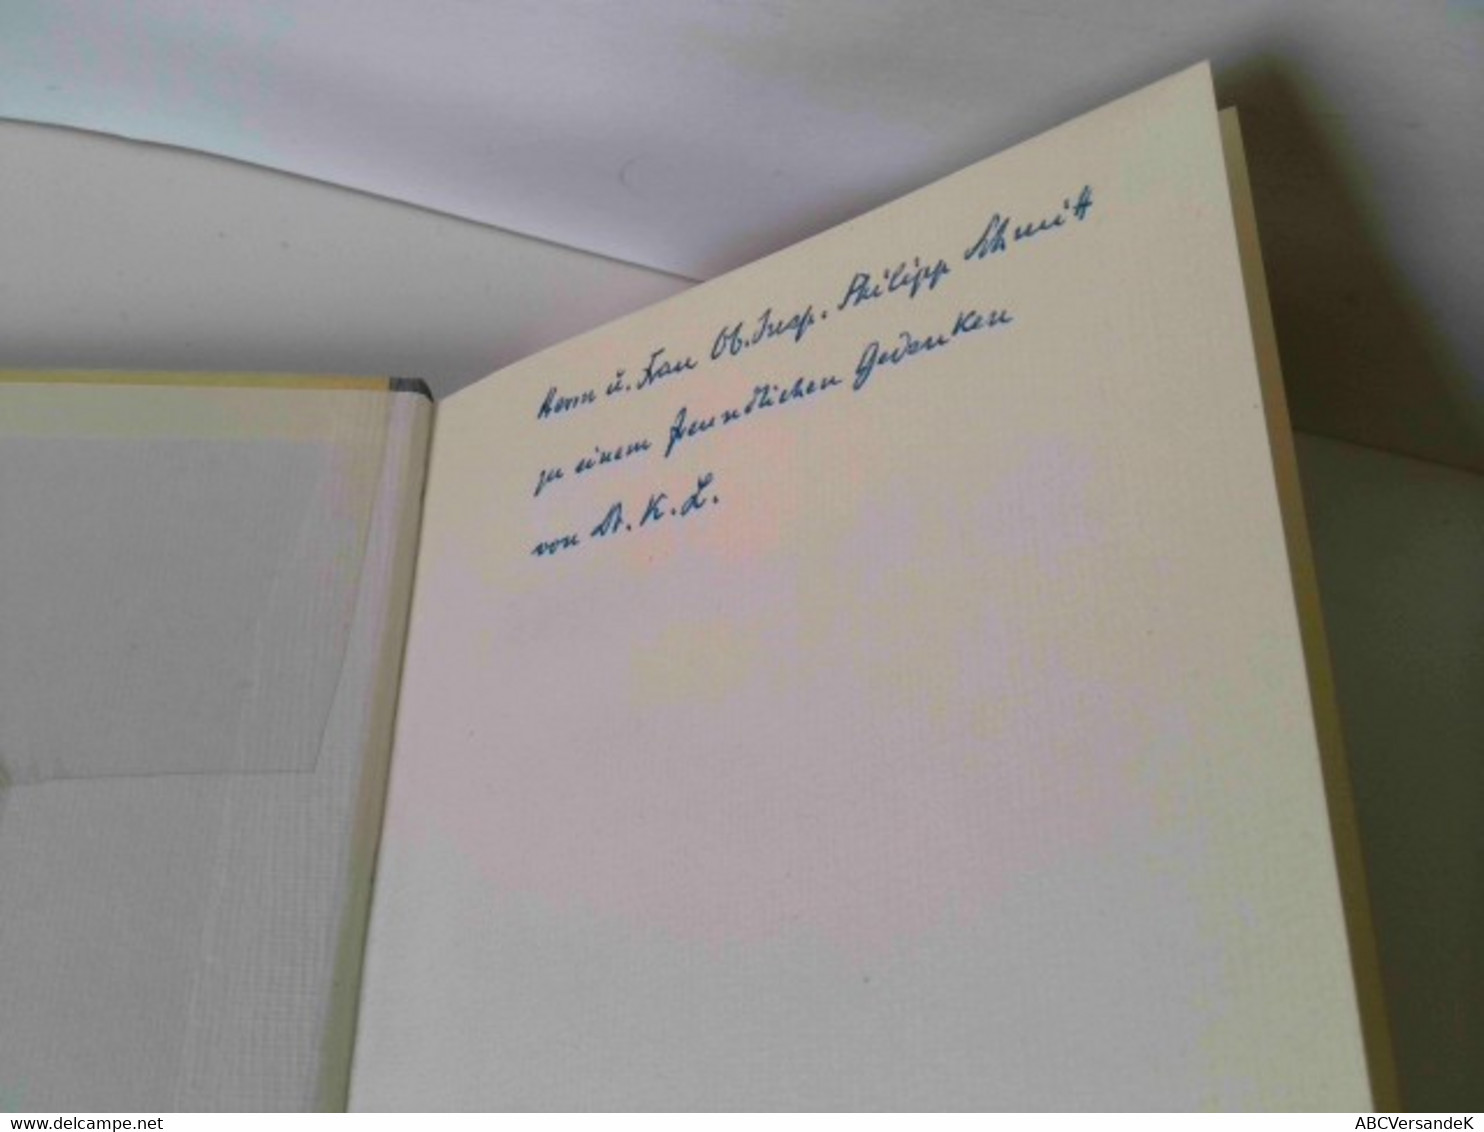 Herrn u. Frau Ob. Insp. Philipp Schmitt
zu einem freundlichen Gedenken
von Dr. K. L.
ABCVersand.com
ABCVersandeK